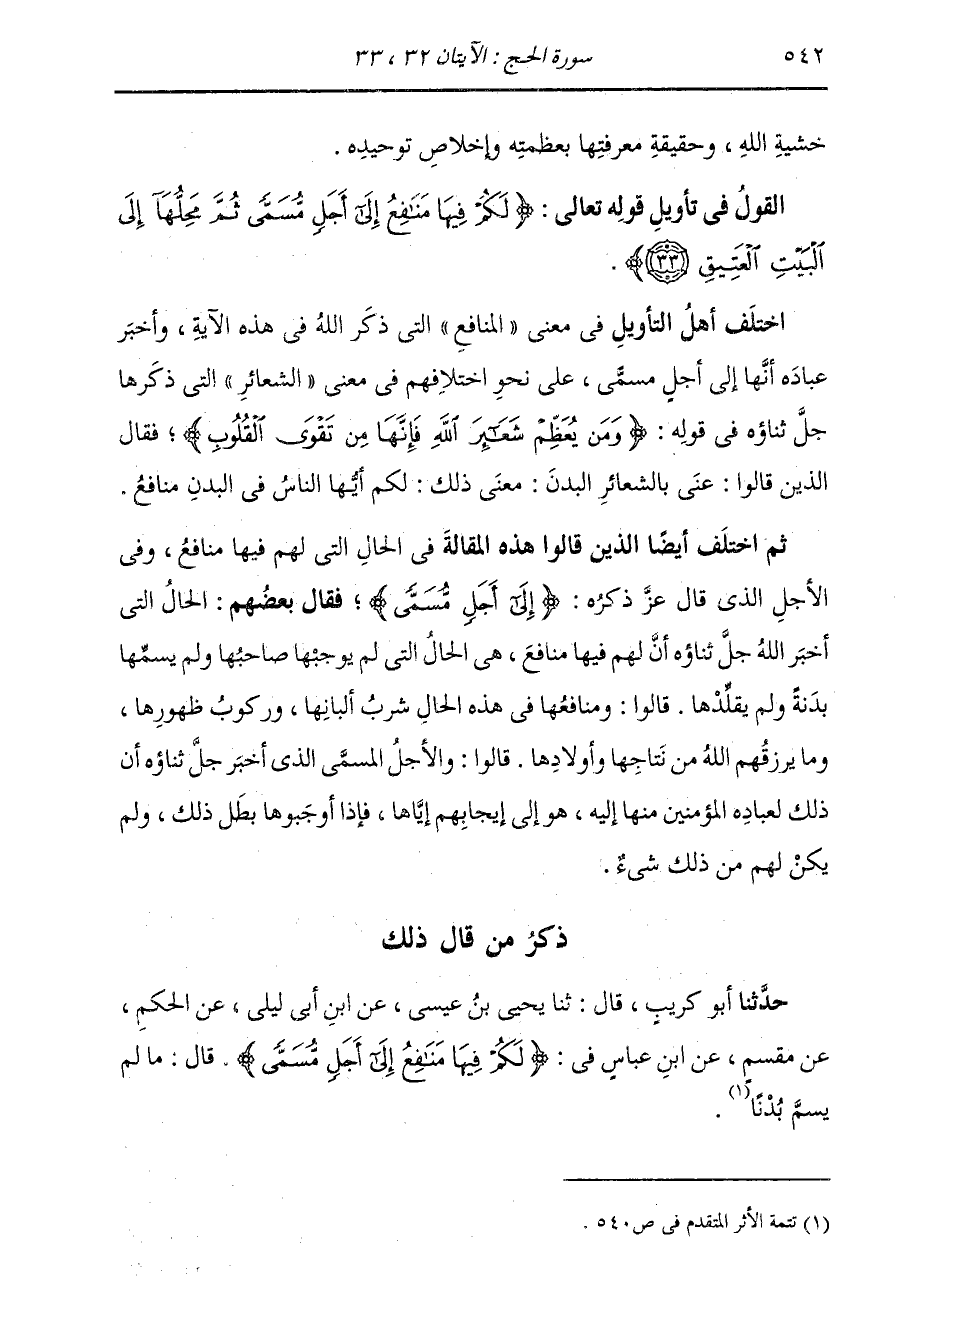 ٥٤٢ سورة الحج : الآيتان ٣٢ ، ٣٣
خشيةِ اللهِ ، وحقيقةِ معرفتِها بعظمتِه وإخلاصِ توحيدِه .
القولُ فى تأويلِ قولِه تعالى : ﴿ لَكُمْ فِيهَا مَنَٰفِعُ إِلَىٰٓ أَجَلٍ مُّسَمًّى ثُمَّ مَحِلُّهَآ إِلَى
ٱلْبَيْتِ ٱلْعَتِيقِ ٣٣ ﴾ .
اختلَف أهلُ التأويلِ فى معنى « المنافعِ » التى ذكَر اللهُ فى هذه الآيةِ ، وأخبَر
عبادَه أنَّها إلى أجلٍ مسمًّى ، على نحوِ اختلافِهم فى معنى « الشعائرِ » التى ذكَرها
جلَّ ثناؤه فى قولِه : ﴿ وَمَن يُعَظِّمْ شَعَٰٓئِرَ ٱللَّهِ فَإِنَّهَا مِن تَقْوَى ٱلْقُلُوبِ ﴾ ؛ فقال
الذين قالوا : عنَى بالشعائرِ البدنَ : معنَى ذلك : لكم أيُّها الناسُ فى البدنِ منافعُ .
ثم اختلَف أيضًا الذين قالوا هذه المقالةَ فى الحالِ التى لهم فيها منافعُ ، وفى
الأجلِ الذى قال عزَّ ذكرُه : ﴿ إِلَىٰٓ أَجَلٍ مُّسَمًّى ﴾ ؛ فقال بعضُهم : الحالُ التى
أخبَر اللهُ جلَّ ثناؤه أنَّ لهم فيها منافعَ ، هى الحالُ التى لم يوجبْها صاحبُها ولم يسمِّها
بدَنةً ولم يقلِّدْها . قالوا : ومنافعُها فى هذه الحالِ شربُ ألبانِها ، وركوبُ ظهورِها ،
وما يرزقُهم اللهُ من نَتاجِها وأولادِها . قالوا : والأجلُ المسمَّى الذى أخبَر جلَّ ثناؤه أن
ذلك لعبادِه المؤمنين منها إليه ، هو إلى إيجابِهم إيَّاها ، فإذا أوجَبوها بطَل ذلك ، ولم
يكنْ لهم من ذلك شىءٌ .
ذكرُ من قال ذلك
حدَّثنا أبو كريبٍ ، قال : ثنا يحيى بنُ عيسى ، عن ابنِ أبى ليلى ، عن الحكمِ ،
عن مقسمٍ ، عن ابنِ عباسٍ فى : ﴿ لَكُمْ فِيهَا مَنَٰفِعُ إِلَىٰٓ أَجَلٍ مُّسَمًّى ﴾ . قال : ما لم
يسمَّ بُدْنًا(١) .
(١) تتمة الأثر المتقدم فى ص ٥٤٠ .